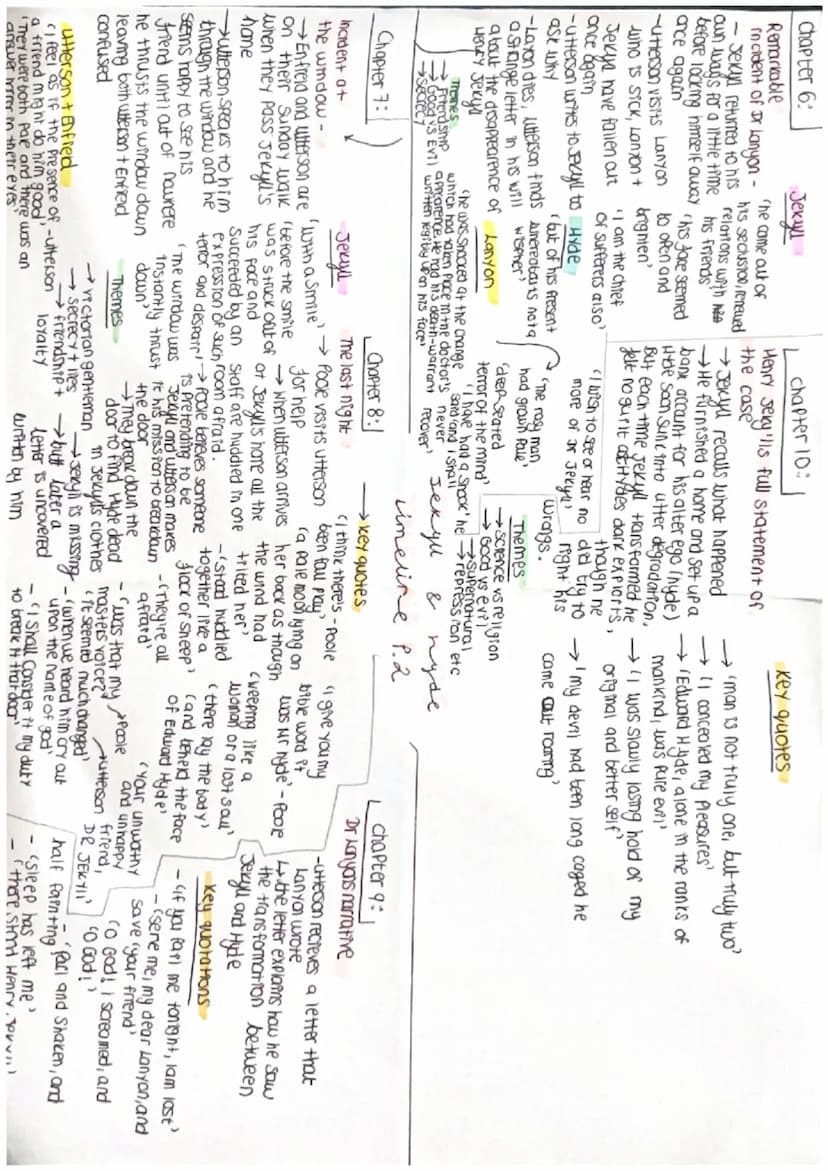 Jekyll & Hyde
Timeline P.2
Chapter 6:
Remarkable
incident of Dr Lanyon -
- Jekyll returned to his
own ways for a little time
before locking himself away
once again
- Utterson visits Lanyon
who is sick, Lanyon +
Jekyll have fallen out
once again
- Utterson writes to Jekyll to
ask why
- Lanyon dies, Utterson finds
a strange letter in his will
about the disappearence of
Henry Jekyll
Themes
→ Friendship
→ Good vs Evil
→ Secrecy
Jekyll
'he came out of
his seclusion, renewed
relations with
his friends'
'his face seemed
to open and
brighten'
'I am the chief
of sufferers also'
Hyde
'but of his present
whereabouts not a
whisper'
Lanyon
'he was shocked at the change
which had taken place in the doctor's
appearance. He had his death-warrant
written legibly upon his face'
'the rosy man
had grown pale'
'deep-seated
terror of the mind'
'I have had a shock' he
said 'and I shall
never
recover'
'I wish to see or hear no
more of Dr Jekyll'
Chapter 10:
Henry Jekyll's full statement of
the case
→ Jekyll recalls what happened
→ He furnished a home and set up a
bank account for his alter ego (Hyde)
Hyde soon sunk into utter degradation,
But each time Jekyll transformed he
felt no guilt at Hydes dark exploits,
though he
did try to
right his
wrongs.
Themes
→ Science vs religion
→ Good vs evil
→ Supernatural
→ repression etc
Key quotes
→ 'man is not truly one, but truly two'
→ 'I concealed my pleasures'
→ 'Edward Hyde, alone in the ranks of
mankind, was pure evil'
→ 'I was slowly losing hold of my
original and better self'
→ 'my devil had been long caged he
came out roaring'
Chapter 7:
Incident at
the window -
→ Enfield and Utterson are
on their Sunday walk
when they pass Jekyll's
home
→ Utterson speaks to him
through the window and he
seems happy to see his
friend until out of nowhere
he thrusts the window down
leaving both Utterson + Enfield
confused
Utterson + Enfield
'I feel as if the presence of
a friend might do him good' - Utterson
'They were both pale and there was an
answer horror in their eyes'
Jekyll
'with a smile'
'before the smile
was struck out of
his face and
succeeded by an
expression of such
terror and despair'
'The window was
instantly thrust
down'
Themes
→ Victorian gentleman
→ secrecy + lies
→ friendship +
loyalty
Chapter 8:
The last night
→ Poole visits Utterson
for help
→ When Utterson arrives
at Jekyll's home all the
staff are huddled in one
room afraid.
→ Poole believes someone
is pretending to be
Jekyll and Utterson makes
it his mission to break down
the door
→ They break down the
door to find Hyde dead
in Jekyll's clothes
→ Jekyll is missing
→ but later a
letter is uncovered
written by him
→ key quotes
'I think there's - Poole
been foul play'
'a pale moon lying on
her back as though
the wind had
tilted her'
- 'stood huddled
together like a
flock of sheep'
- 'they're all
afraid'
- 'was that my → Poole
masters voice?'
'It seemed much changed' → Utterson
- 'when we heard him cry out
upon the name of god'
- 'I shall consider it my duty
to break in that door'
'I give you my
bible word it
was Mr Hyde' - Poole
'weeping like a
woman or a lost soul'
'there lay the body'
'and beheld the face
of Edward Hyde'
'Your unworthy
and unhappy
friend,
DR JEKYLL'
Chapter 9:
Dr Lanyons narrative
- Utterson recieves a letter that
Lanyon wrote
↳ the letter explains how he saw
the transformation between
Jekyll and Hyde
Key quotations
- 'if you fail me tonight, I am lost'
- 'serve me, my dear Lanyon, and
save 'your friend'
- 'O God! I screamed, and
'O God!'
- 'pail and shaken, and
half fainting
- 'sleep has left me'
- 'there stood Henry Jekyll'